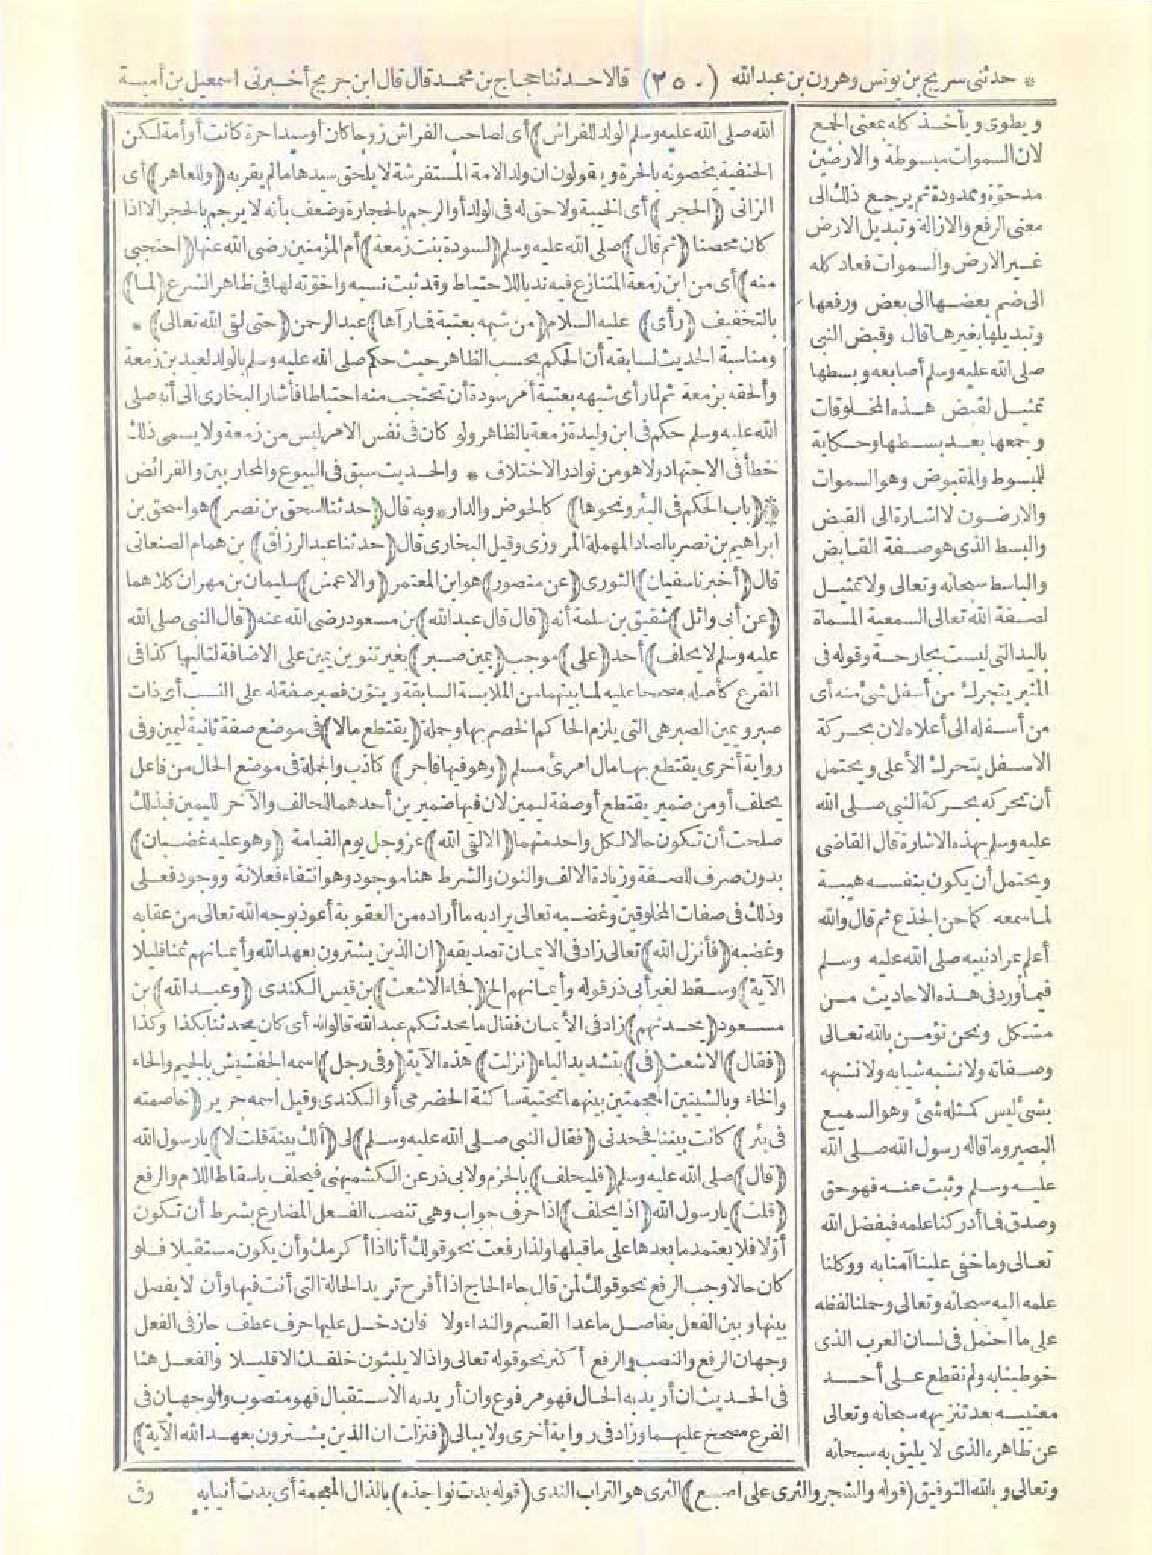 * حدثنى سريج بن يونس وهرون بن عبد الله (٢٥٠) قالا حدثنا حجاج بن محمد قال قال ابن جريج أخبرنى اسمعيل بن أمية
ويطوى ويأخذ كله بمعنى الجمع
لان السموات مبسوطة والارضين
مدحوّة وممدودة ثم يرجع ذلك الى
معنى الرفع والازالة وتبديل الارض
غير الارض والسموات فعاد كله
الى ضم بعضها الى بعض ورفعها
وتبديلها بغيرها قال وقبض النبى
صلى الله عليه وسلم أصابعه وبسطها
تمثيل لقبض هذه المخلوقات
وجمعها بعد بسطها وحكاية
للمبسوط والمقبوض وهو السموات
والارضون لا اشارة الى القبض
والبسط الذى هو صفة القابض
والباسط سبحانه وتعالى ولا تمثيل
لصفة الله تعالى السمعية المسماة
باليد التى ليست بجارحة وقوله فى
المنبر يتحرك من أسفل شئ منه أى
من أسفله الى أعلاه لان بحركة
الاسفل يتحرك الأعلى ويحتمل
أن تحركه بحركة النبى صلى الله
عليه وسلم بهذه الاشارة قال القاضى
ويحتمل أن يكون بنفسه هيبة
لما سمعه كما حن الجذع ثم قال والله
أعلم بمراد نبيه صلى الله عليه وسلم
فيما ورد فى هذه الاحاديث من
مشكل ونحن نؤمن بالله تعالى
وصفاته ولا نشبه شيأ به ولا نشبهه
بشئ ليس كمثله شئ وهو السميع
البصير وما قاله رسول الله صلى الله
عليه وسلم وثبت عنه فهو حق
وصدق فما أدركنا علمه فبفضل الله
تعالى وما خفى علينا آمنا به ووكلنا
علمه اليه سبحانه وتعالى وحملنا لفظه
على ما احتمل فى لسان العرب الذى
خوطبنا به ولم نقطع على أحد
معنييه بعد تنزيهه سبحانه وتعالى
عن ظاهره الذى لا يليق به سبحانه
وتعالى وبالله التوفيق (قوله والشجر والثرى على اصبع) الثرى هو التراب الندى (قوله بدت نواجذه) بالذال المعجمة أى بدت أنيابه
الله صلى الله عليه وسلم الولد للفراش) أى لصاحب الفراش زوجا كان أو سيدا حرة كانت أو أمة لكن
الحنفية يخصونه بالحرة ويقولون ان ولد الامة المستفرشة لا يلحق سيدها ما لم يقر به (وللعاهر) أى
الزانى (الحجر) أى الخيبة ولا حق له فى الولد أو الرجم بالحجارة وضعف بأنه لا يرجم بالحجر الا اذا
كان محصنا (ثم قال) صلى الله عليه وسلم (لسودة بنت زمعة) أم المؤمنين رضى الله عنها (احتجبى
منه) أى من ابن زمعة المتنازع فيه ندبا للاحتياط وقد ثبت نسبه واخوّته لها فى ظاهر الشرع (لما)
بالتخفيف (رأى) عليه السلام (من شبهه بعتبة فما رآها) عبد الرحمن (حتى لقى الله تعالى) *
ومناسبة الحديث لسابقه أن الحكم بحسب الظاهر حيث حكم صلى الله عليه وسلم بالولد لعبد بن زمعة
وألحقه بزمعة ثم لما رأى شبهه بعتبة أمر سودة أن تحتجب منه احتياطا فأشار البخارى الى أنه صلى
الله عليه وسلم حكم فى ابن وليدة زمعة بالظاهر ولو كان فى نفس الامر ليس من زمعة ولا يسمى ذلك
خطأ فى الاجتهاد ولا هو من نوادر الاختلاف * والحديث سبق فى البيوع والمحاربين والفرائض
* (باب الحكم فى البئر ونحوها) كالحوض والدار * وبه قال (حدثنا اسحق بن نصر) هو اسحق بن
ابراهيم بن نصر بالصاد المهملة المروزى وقيل البخارى قال (حدثنا عبد الرزاق) بن همام الصنعانى
قال (أخبرنا سفيان) الثورى (عن منصور) هو ابن المعتمر (والاعمش) سليمان بن مهران كلاهما
(عن أبى وائل) شقيق بن سلمة أنه (قال قال عبد الله) بن مسعود رضى الله عنه (قال النبى صلى الله
عليه وسلم لا يحلف) أحد (على) موجب (يمين صبر) بغير تنوين يمين على الاضافة لتاليها كذا فى
الفرع كأصله مصححا عليه لما بينهما من الملابسة السابقة وينوّن فصبر صفة له على النسب أى ذات
صبر ويمين الصبر هى التى يلزم الحاكم الخصم بها وجملة (يقتطع مالا) فى موضع صفة ثانية ليمين وفى
رواية أخرى يقتطع بها مال امرئ مسلم (وهو فيها فاجر) كاذب والجملة فى موضع الحال من فاعل
يحلف أو من ضمير يقتطع أو صفة ليمين لان فيها ضميرين أحدهما للحالف والآخر لليمين فبذلك
صلحت أن تكون حالا لكل واحد منهما (الا لقى الله) عز وجل يوم القيامة (وهو عليه غضبان)
بدون صرف للصفة وزيادة الالف والنون والشرط هنا موجود وهو انتفاء فعلانة ووجود فعلى
وذلك فى صفات المخلوقين وغضبه تعالى يراد به ما أراده من العقوبة أعوذ بوجه الله تعالى من عقابه
وغضبه (فأنزل الله) تعالى زاد فى الايمان تصديقه (ان الذين يشترون بعهد الله وأيمانهم ثمنا قليلا
الآية) وسقط لغير أبى ذر قوله وأيمانهم الخ (فجاء الاشعث) بن قيس الكندى (وعبد الله) بن
مسعود (يحدثهم) زاد فى الأيمان فقال ما يحدثكم عبد الله قالوا له أى كان يحدثنا بكذا وكذا
(فقال) الاشعث (فىّ) بتشديد الياء (نزلت) هذه الآية (وفى رجل) اسمه الجفشيش بالجيم والحاء
والخاء وبالشينين المعجمتين بينهما تحتية ساكنة الحضرمى أو الكندى وقيل اسمه جرير (خاصمته
فى بئر) كانت بيننا فجحدنى (فقال النبى صلى الله عليه وسلم) لى (ألك بينة قلت لا) يارسول الله
(قال) صلى الله عليه وسلم (فليحلف) بالجزم ولابى ذر عن الكشميهنى فيحلف باسقاط اللام والرفع
(قلت) يارسول الله (اذا يحلف) اذا حرف جواب وهى تنصب الفعل المضارع بشرط أن تكون
أوّلا فلا يعتمد ما بعدها على ما قبلها ولذا رفعت نحو قولك أنا اذا أكرمك وأن يكون مستقبلا فلو
كان حالا وجب الرفع نحو قولك لمن قال جاء الحاج اذا أفرح تريد الحالة التى أنت فيها وأن لا يفصل
بينها وبين الفعل بفاصل ما عدا القسم والنداء ولا فان دخل عليها حرف عطف جاز فى الفعل
وجهان الرفع والنصب والرفع أكثر نحو قوله تعالى واذا لا يلبثون خلفك الا قليلا والفعل هنا
فى الحديث ان أريد به الحال فهو مرفوع وان أريد به الاستقبال فهو منصوب والوجهان فى
الفرع مصحح عليهما وزاد فى رواية أخرى ولا يبالى (فنزلت ان الذين يشترون بعهد الله الآية)
وفى